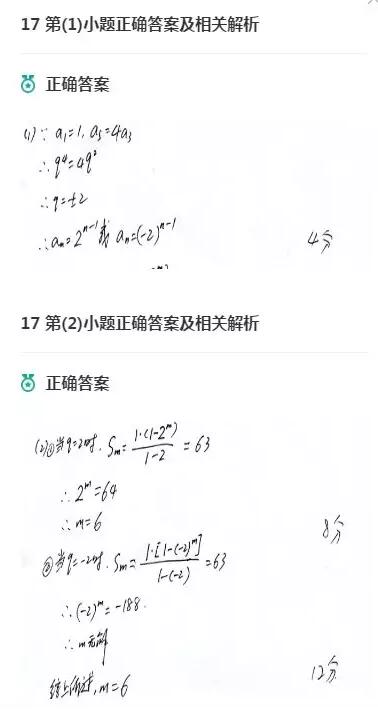 17 第(1)小题正确答案及相关解析
正确答案
(1)∵ a₁=1, a₅=4a₃
∴q⁴=4q²
∴q=±2
∴aₙ=2ⁿ⁻¹或 aₙ=(-2)ⁿ⁻¹ 4分
17 第(2)小题正确答案及相关解析
正确答案
(2)①当q=2时. Sₘ= 1·(1-2ᵐ) / 1-2 =63
∴2ᵐ=64
∴m=6 8分
②当q=-2时. Sₘ= 1·[1-(-2)ᵐ] / 1-(-2) =63
∴(-2)ᵐ=-188.
∴m无解
综上所述, m=6 12分